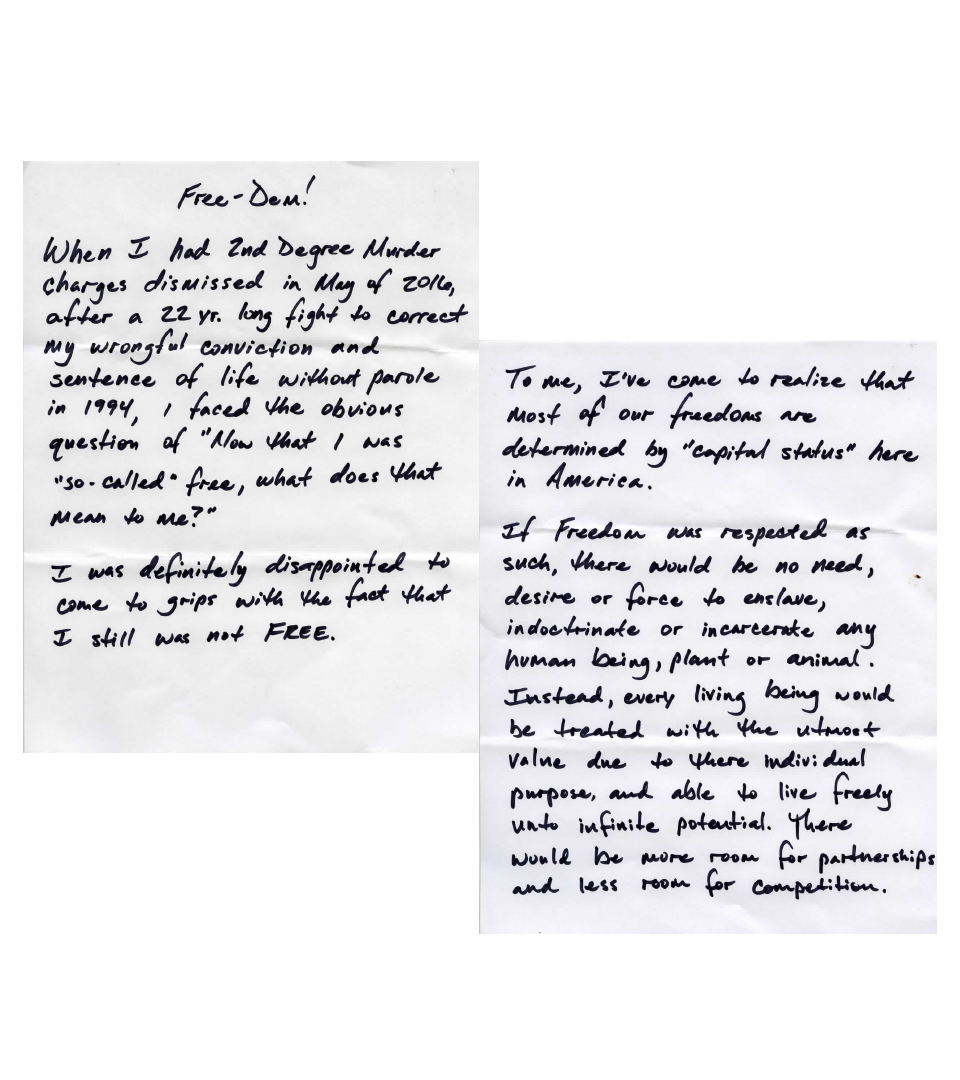 Free-Dem!
When I had 2nd Degree Murder
charges dismissed in May of 2016,
after a 22 yr. long fight to correct
my wrongful conviction and
sentence of life without parole
in 1994, I faced the obvious
question of "Now that I was
"so-called" free, what does that
mean to me?"
I was definitely disappointed to
come to grips with the fact that
I still was not FREE.
To me, I've come to realize that
most of our freedoms are
determined by "capital status" here
in America.
If Freedom was respected as
such, there would be no need,
desire or force to enslave,
indoctrinate or incarcerate any
human being, plant or animal.
Instead, every living being would
be treated with the utmost
value due to there individual
purpose, and able to live freely
unto infinite potential. There
would be more room for partnerships
and less room for competition.